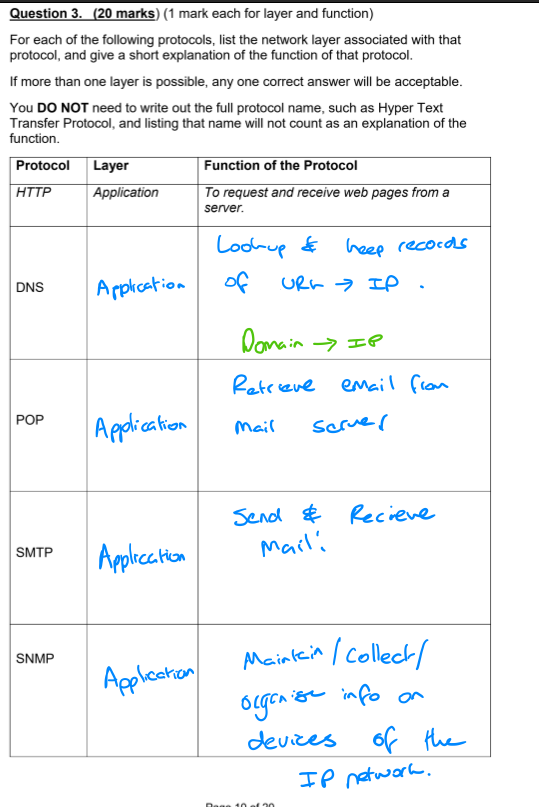 Question 3. (20 marks) (1 mark each for layer and function)
For each of the following protocols, list the network layer associated with that
protocol, and give a short explanation of the function of that protocol.
If more than one layer is possible, any one correct answer will be acceptable.
You DO NOT need to write out the full protocol name, such as Hyper Text
Transfer Protocol, and listing that name will not count as an explanation of the
function.
Protocol Layer Function of the Protocol
HTTP Application To request and receive web pages from a
server.
Look-up & keep records
DNS Application of URL → IP .
Domain → IP
Retrieve email from
POP Application mail server
Send & Recieve
SMTP Application Mail.
SNMP Application Maintain / Collect /
organise info on
devices of the
IP network.
Page 10 of 20